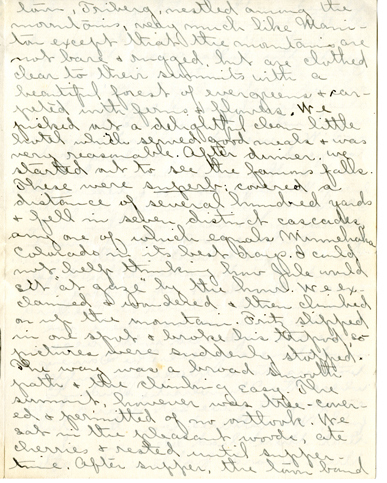 town, Triberg, nestled among the
mountains, very much like Mani-
tou except that the mountains are
not bare & rugged, but are clothed
clear to their summits with a
beautiful forest of evergreens & car-
peted with ferns & flowers. We
picked out a delightful clean little
hotel which served good meals & was
very reasonable. After dinner, we
started out to see the famous falls.
These were superb; covered a
distance of several hundred yards
& fell in seven distinct cascades,
any one of which equals Minnehaha
Colorado in its best days. I could
not help thinking how would
"sit at gaze" by the hour. We ex-
claimed & wondered & then climbed
on up the mountain. Fritz slipped
in one spot & broke his tripod, so
pictures were suddenly stopped.
The way was a broad smooth
path & the climbing easy. The
summit, however was tree-cover-
ed & permitted of no outlook. We
sat in the pleasant woods, ate
cherries & rested until supper-
time. After supper, the town band